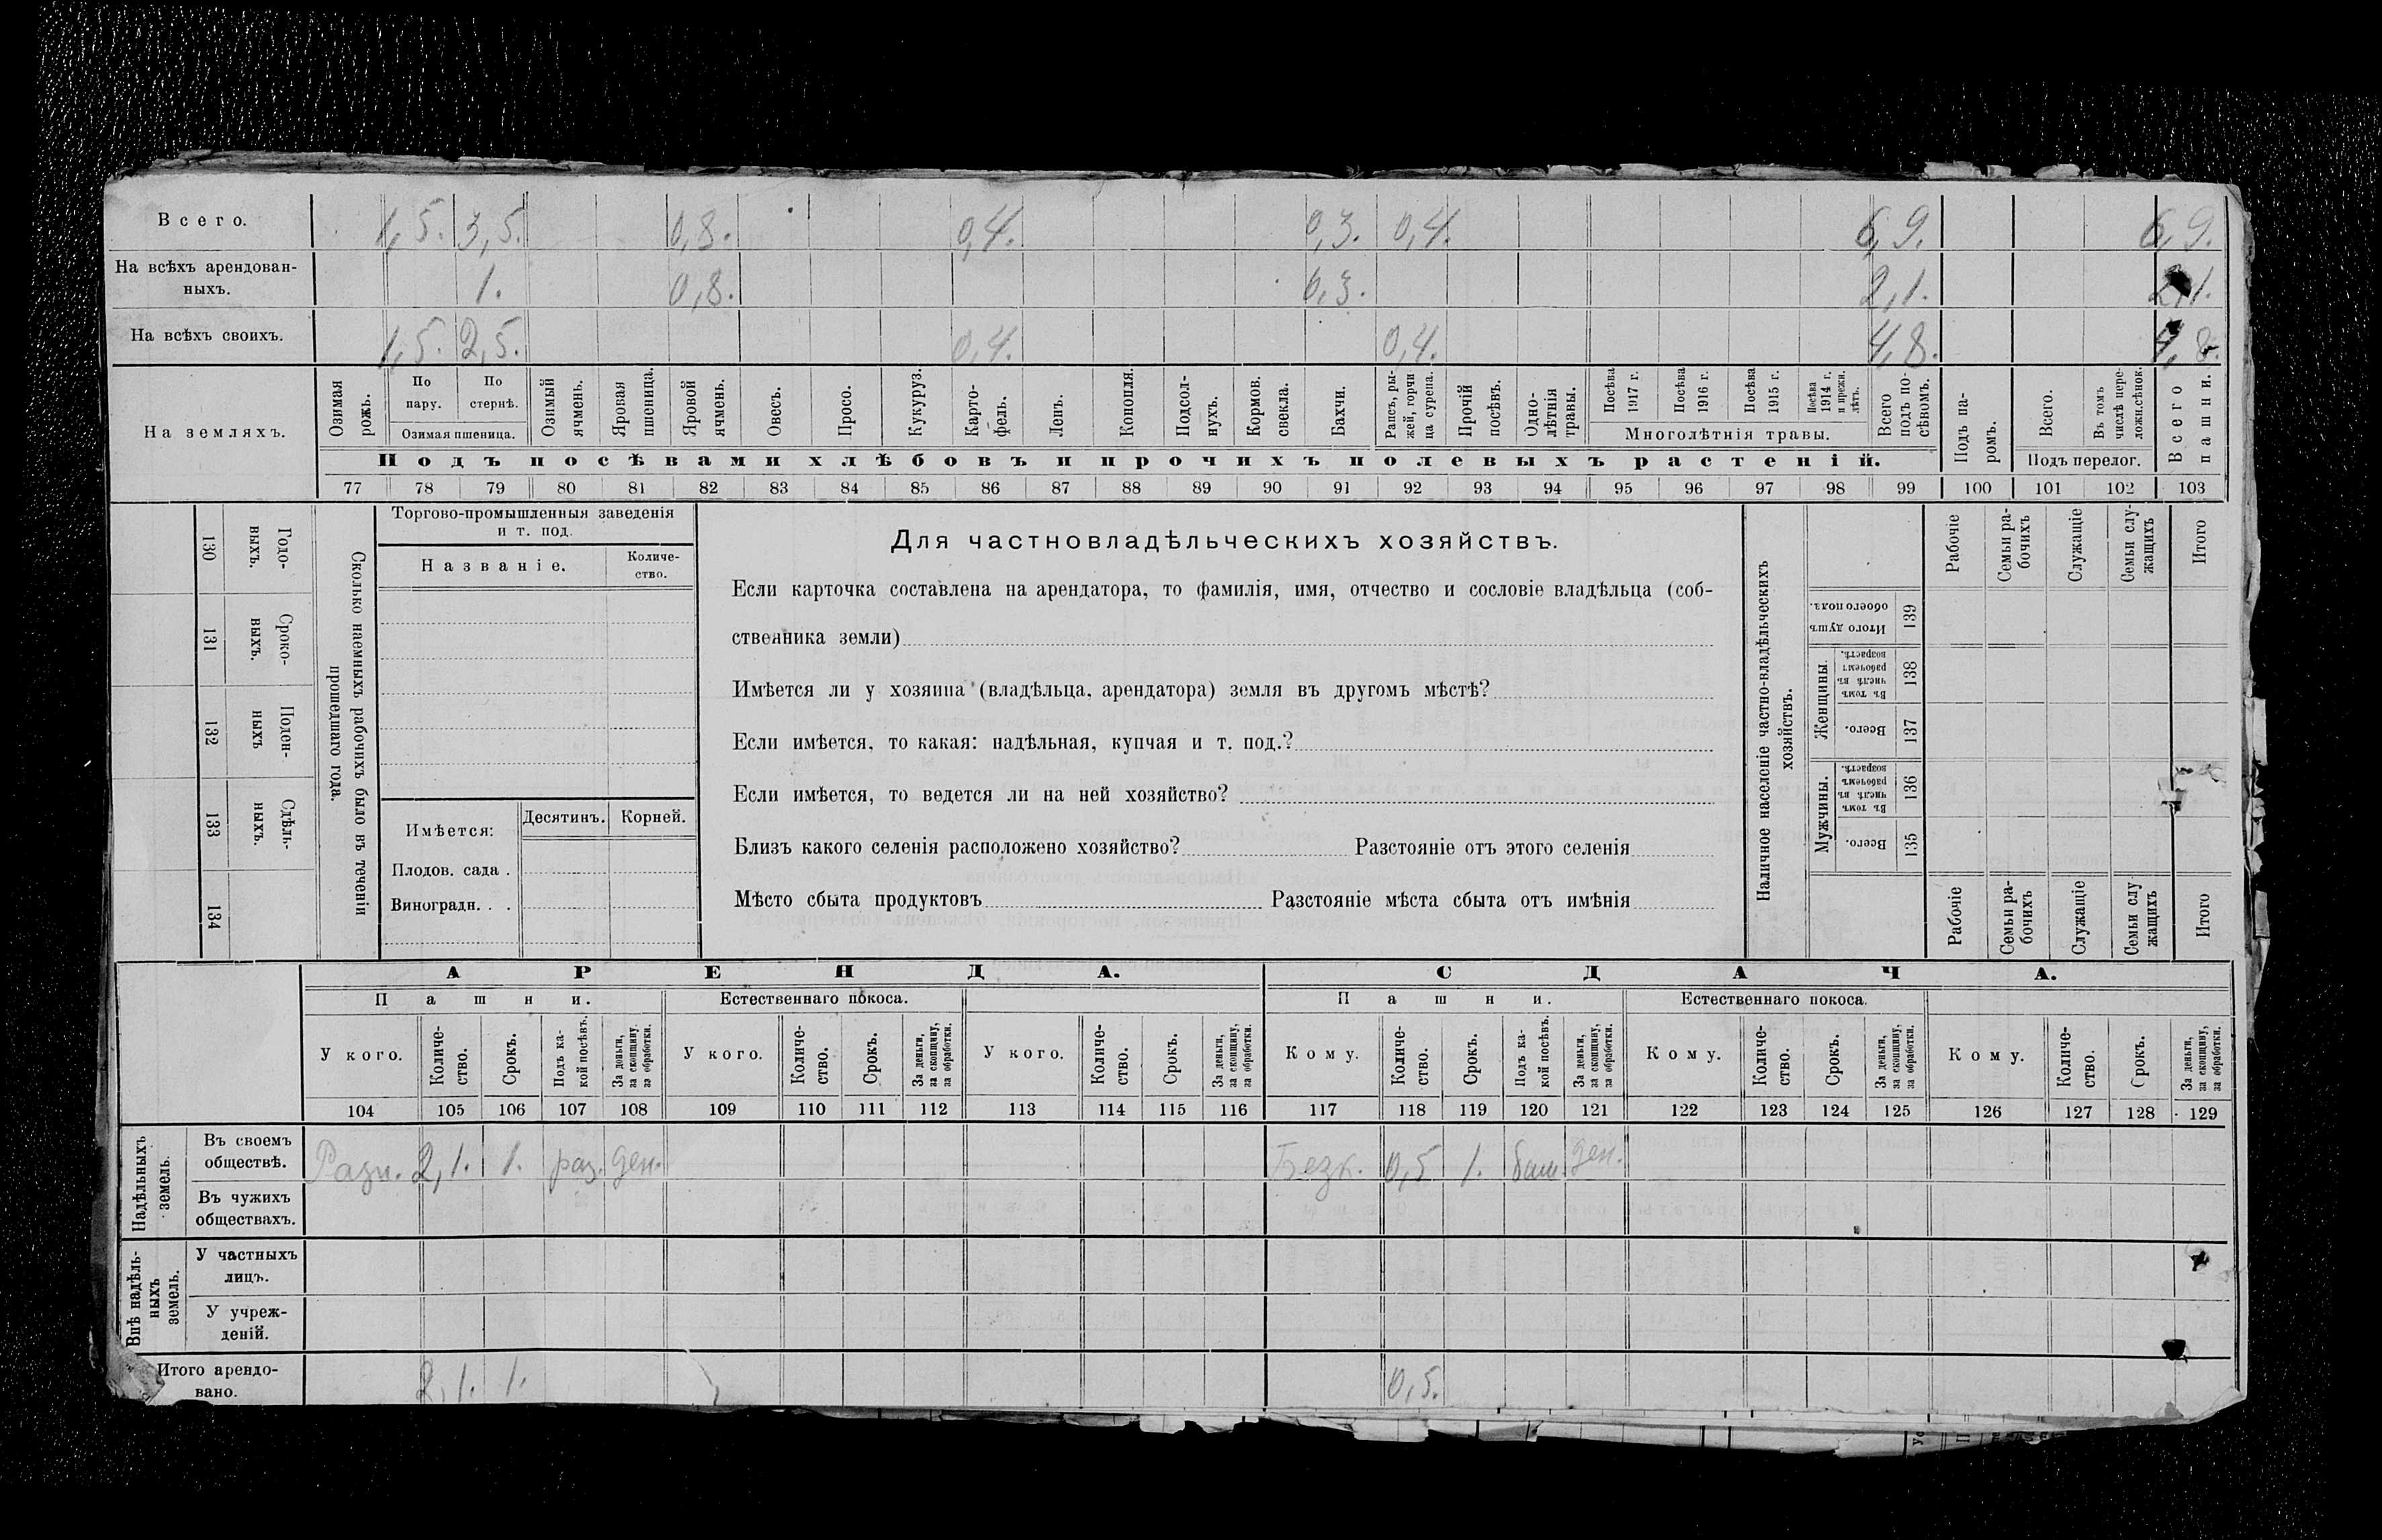 Всего. 1,5. 3,5. 0,8. 0,4. 0,3. 0,4. 6,9. 6,9.
На всѣхъ арендован-
ныхъ. 1. 0,8. 0,3. 2,1. 2,1.
На всѣхъ своихъ. 1,5. 2,5. 0,4. 0,4. 4,8. 4,8.
На земляхъ.
Озимая рожь.
По пару.
По стернѣ.
Озимая пшеница.
Озимый ячмень.
Яровая пшеница.
Яровой ячмень.
Овесъ.
Просо.
Кукуруз.
Карто-
фель.
Ленъ.
Конопля.
Подсол-
нухъ.
Кормов. свекла.
Бахчи.
Рапсъ, ры-
жей, горчи
ца сурепа.
Прочій посѣвъ.
Одно-
лѣтнія травы.
Посѣва 1917 г.
Посѣва 1916 г.
Посѣва 1915 г.
Посѣва 1914 г. и прежн. лѣтъ.
Многолѣтнія травы.
Всего подъ по-
сѣвомъ.
Подъ па-
ромъ.
Всего.
Въ томъ числѣ пере-
ложн.сѣнок.
Подъ перелог.
Всего пашни.
Подъ посѣвами хлѣбовъ и прочихъ полевыхъ растеній.
77 78 79 80 81 82 83 84 85 86 87 88 89 90 91 92 93 94 95 96 97 98 99 100 101 102 103
Годо-
ныхъ.
130
Сроко-
ныхъ.
131
Поден-
ныхъ
132
Сдѣль-
ныхъ.
133
134
Сколько наемныхъ рабочихъ было въ теченіи
прошедшаго года.
Торгово-промышленныя заведенія
и т. под.
Названіе.
Количе-
ство.
Имѣется:
Десятинъ.
Корней.
Плодов. сада .
Виноградн. . .
Для частновладѣльческихъ хозяйствъ.
Если карточка составлена на арендатора, то фамилія, имя, отчество и сословіе владѣльца (соб-
ственника земли)
Имѣется ли у хозяина (владѣльца, арендатора) земля въ другомъ мѣстѣ?
Если имѣется, то какая: надѣльная, купчая и т. под.?
Если имѣется, то ведется ли на ней хозяйство?
Близъ какого селенія расположено хозяйство? Разстояніе отъ этого селенія
Мѣсто сбыта продуктовъ Разстояніе мѣста сбыта отъ имѣнія
Наличное населеніе частно-владѣльческихъ
хозяйствъ.
Рабочіе
Семьи ра-
бочихъ
Служащіе
Семьи слу-
жащихъ
Итого
Итого душъ
обоего пола.
139
Женщины.
Въ томъ числѣ въ рабочемъ возрастѣ.
138
Всего.
137
Мужчины.
Въ томъ числѣ въ рабочемъ возрастѣ.
136
Всего.
135
Рабочіе
Семьи ра-
бочихъ
Служащіе
Семьи слу
жащихъ
Итого
АРЕНДА. СДАЧА.
Пашни. Естественнаго покоса. Пашни. Естественнаго покоса.
У кого.
Количе-
ство.
Срокъ.
Подъ ка-
кой посѣвъ.
За деньги,
за скопщину,
за обработки.
У кого.
Количе-
ство.
Срокъ.
За деньги,
за скопщину,
за обработки.
У кого.
Количе-
ство.
Срокъ.
За деньги,
за скопщину,
за обработки.
Кому.
Количе-
ство.
Срокъ.
Подъ ка-
кой посѣвъ.
За деньги,
за скопщину,
за обработки.
Кому.
Количе-
ство.
Срокъ.
За деньги,
за скопщину,
за обработки.
Кому.
Количе-
ство.
Срокъ.
За деньги,
за скопщину,
за обработки.
104 105 106 107 108 109 110 111 112 113 114 115 116 117 118 119 120 121 122 123 124 125 126 127 128 129
Надѣльныхъ
земель.
Въ своемъ
обществѣ. Разн. 2,1. 1. раз. ден. Безк. 0,5 1. ден.
Въ чужихъ
обществахъ.
Внѣ надѣль-
ныхъ
земель.
У частныхъ
лицъ.
У учреж-
деній.
Итого арендо-
вано. 2,1. 1. 0,5.